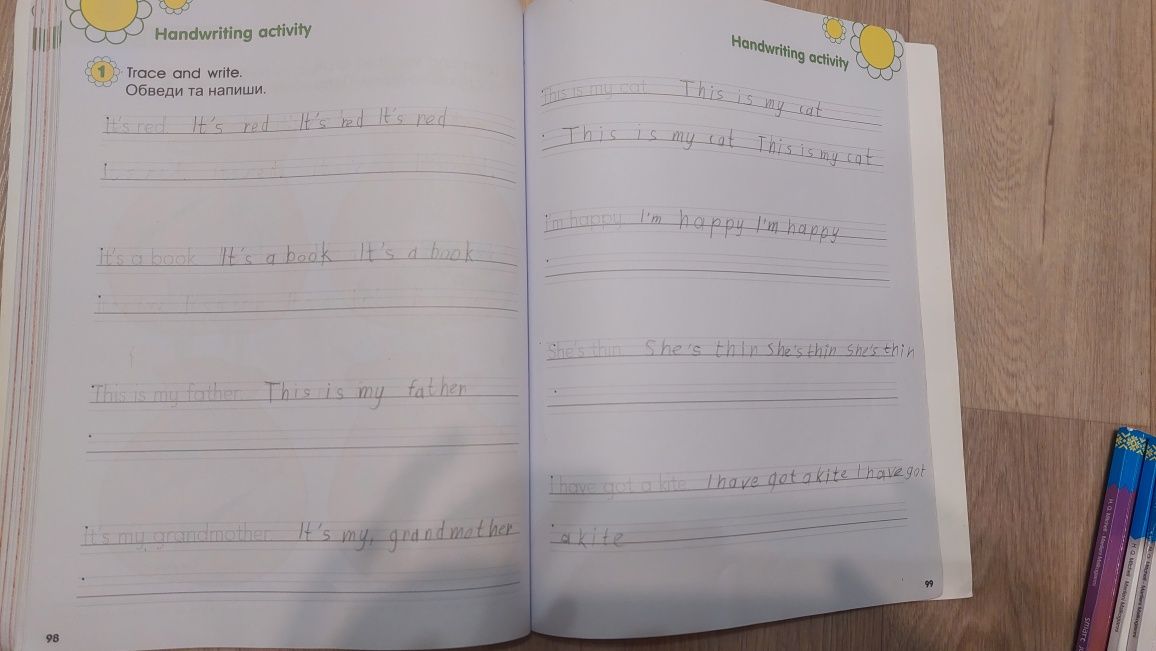 Handwriting activity
1 Trace and write.
Обведи та напиши.
It's red It's red It's red It's red
It's a book It's a book It's a book
This is my father This is my father
It's my grandmother It's my, grandmother
98
Handwriting activity
This is my cat This is my cat
This is my cat This is my cat
I'm happy I'm happy I'm happy
She's thin She's thin She's thin She's thin
I have got a kite I have got a kite I have got
a kite
99